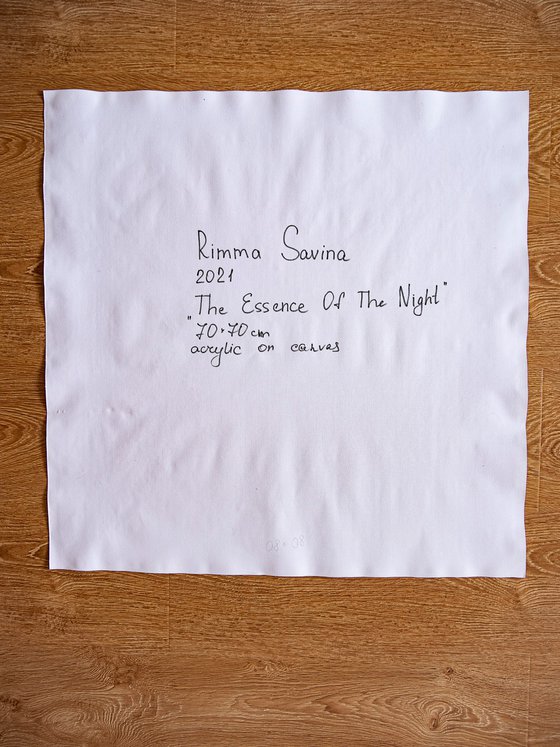 Rimma Savina
2021
"The Essence Of The Night"
70·70 cm
acrylic on canvas